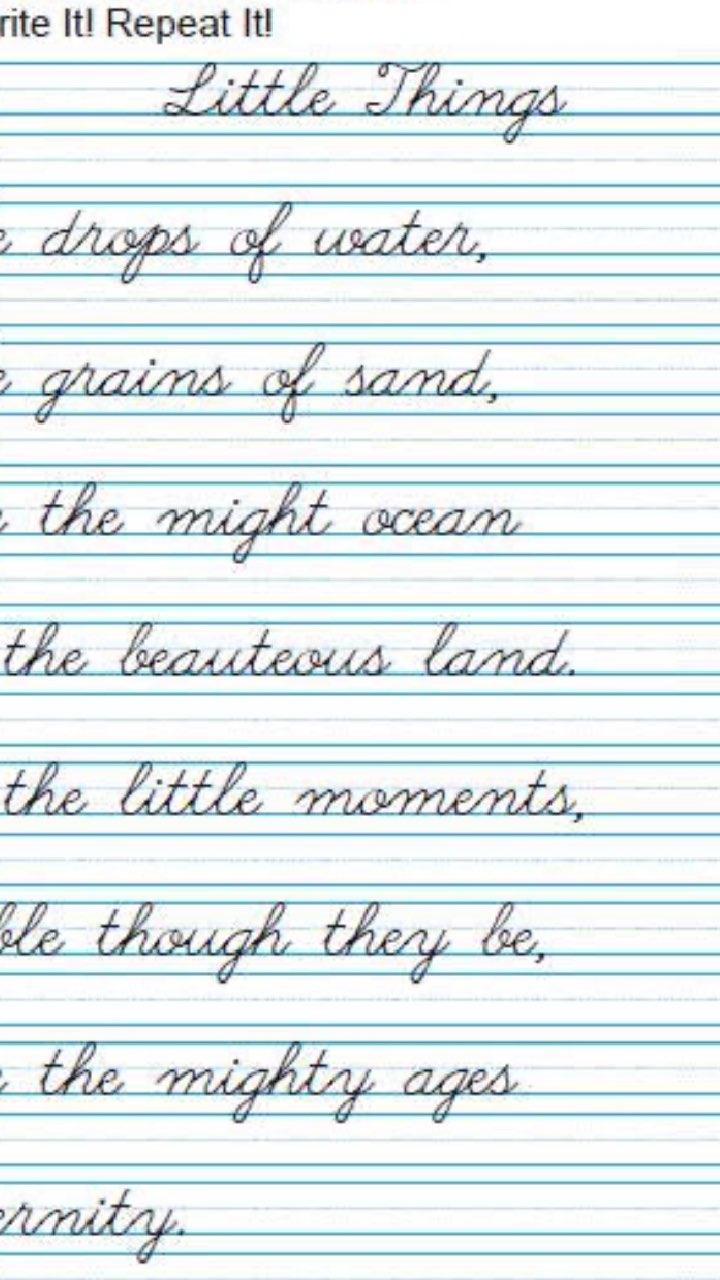 rite It! Repeat It!
Little Things
e drops of water,
e grains of sand,
e the might ocean
the beauteous land.
the little moments,
ble though they be,
e the mighty ages
ernity.